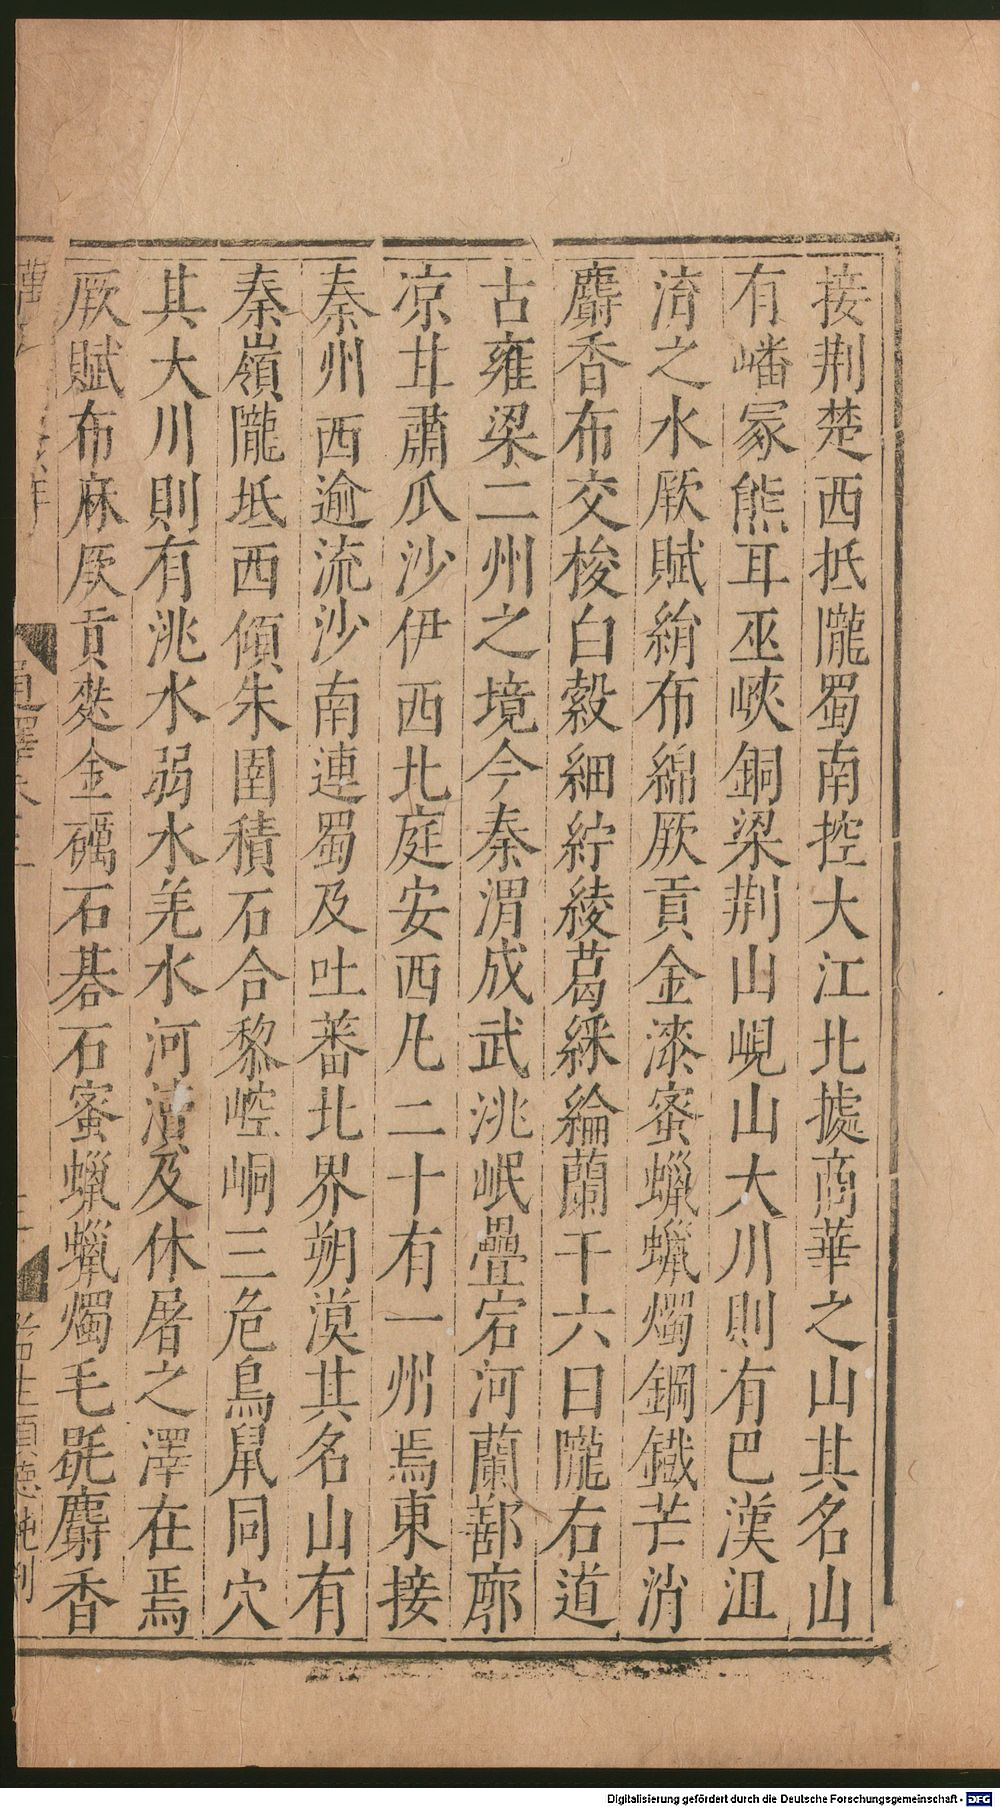 接荆楚西抵隴蜀南控大江北㨿商華之山其名山
有嶓冢熊耳巫峽銅梁荆山峴山大川則有巴漢沮
淯之水厥賦絹布綿厥貢金漆蜜蠟蠟燭鋼鐵芒消
麝香布交梭白縠細紵綾葛綵綸蘭干六曰隴右道
古雍梁二州之境今秦渭成武洮岷疊宕河蘭鄯廓
凉甘肅瓜沙伊西北庭安西凡二十有一州焉東接
秦州西逾流沙南連蜀及吐蕃北界朔漠其名山有
秦嶺隴坻西傾朱圉積石合黎崆峒三危鳥鼠同穴
其大川則有洮水弱水羌水河瀆及休屠之澤在焉
厥賦布麻厥貢麩金礪石碁石蜜蠟蠟燭毛毼麝香
Digitalisierung gefördert durch die Deutsche Forschungsgemeinschaft - DFG